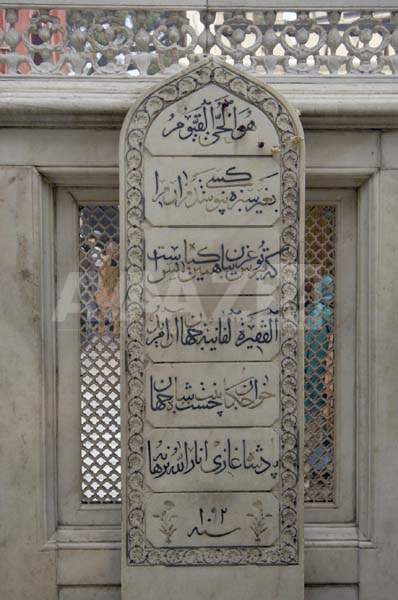 هو الحی القیوم
بغیر سبزه نپوشد کسے مزار مرا
که قبرپوش غریبان همین گیاه بس است
الفقیرة الفانیة جهان ارا مرید
خواجگان چشت بنت شاه جهان
پادشاه غازی انار الله برهانه
سنه ۱۰۹۲